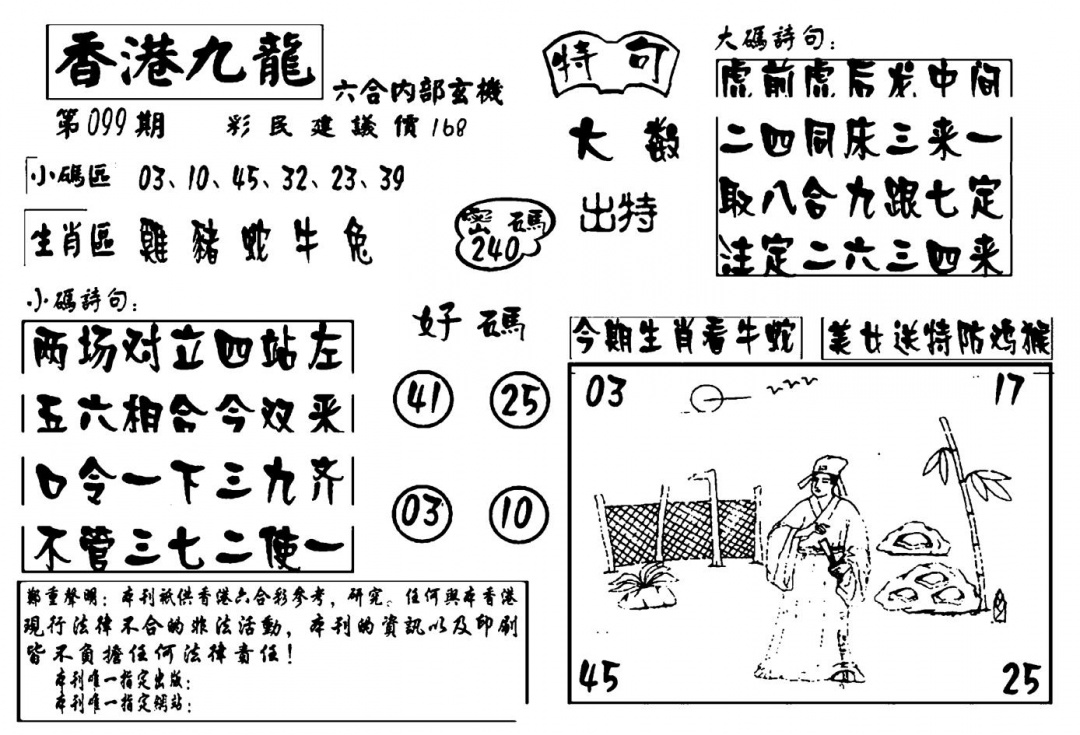 香港九龍
六合内部玄機
第099期 彩民建議價168
小碼區 03、10、45、32、23、39
生肖區 雞 豬 蛇 牛 兔
密碼
240
小碼詩句:
两场对立四站左
五六相合今双来
口令一下三九齐
不管三七二使一
好碼
41 25
03 10
特句
大数
出特
大碼詩句:
虎前虎后龙中间
二四同床三来一
取八合九跟七定
注定二六三四来
今期生肖看牛蛇
美女送特防鸡猴
03 17
45 25
鄭重聲明:本刊祇供香港六合彩参考,研究。任何與本香港
現行法律不合的非法活動,本刊的資訊以及印刷
皆不負擔任何法律責任!
本刊唯一指定出版:
本刊唯一指定網站: